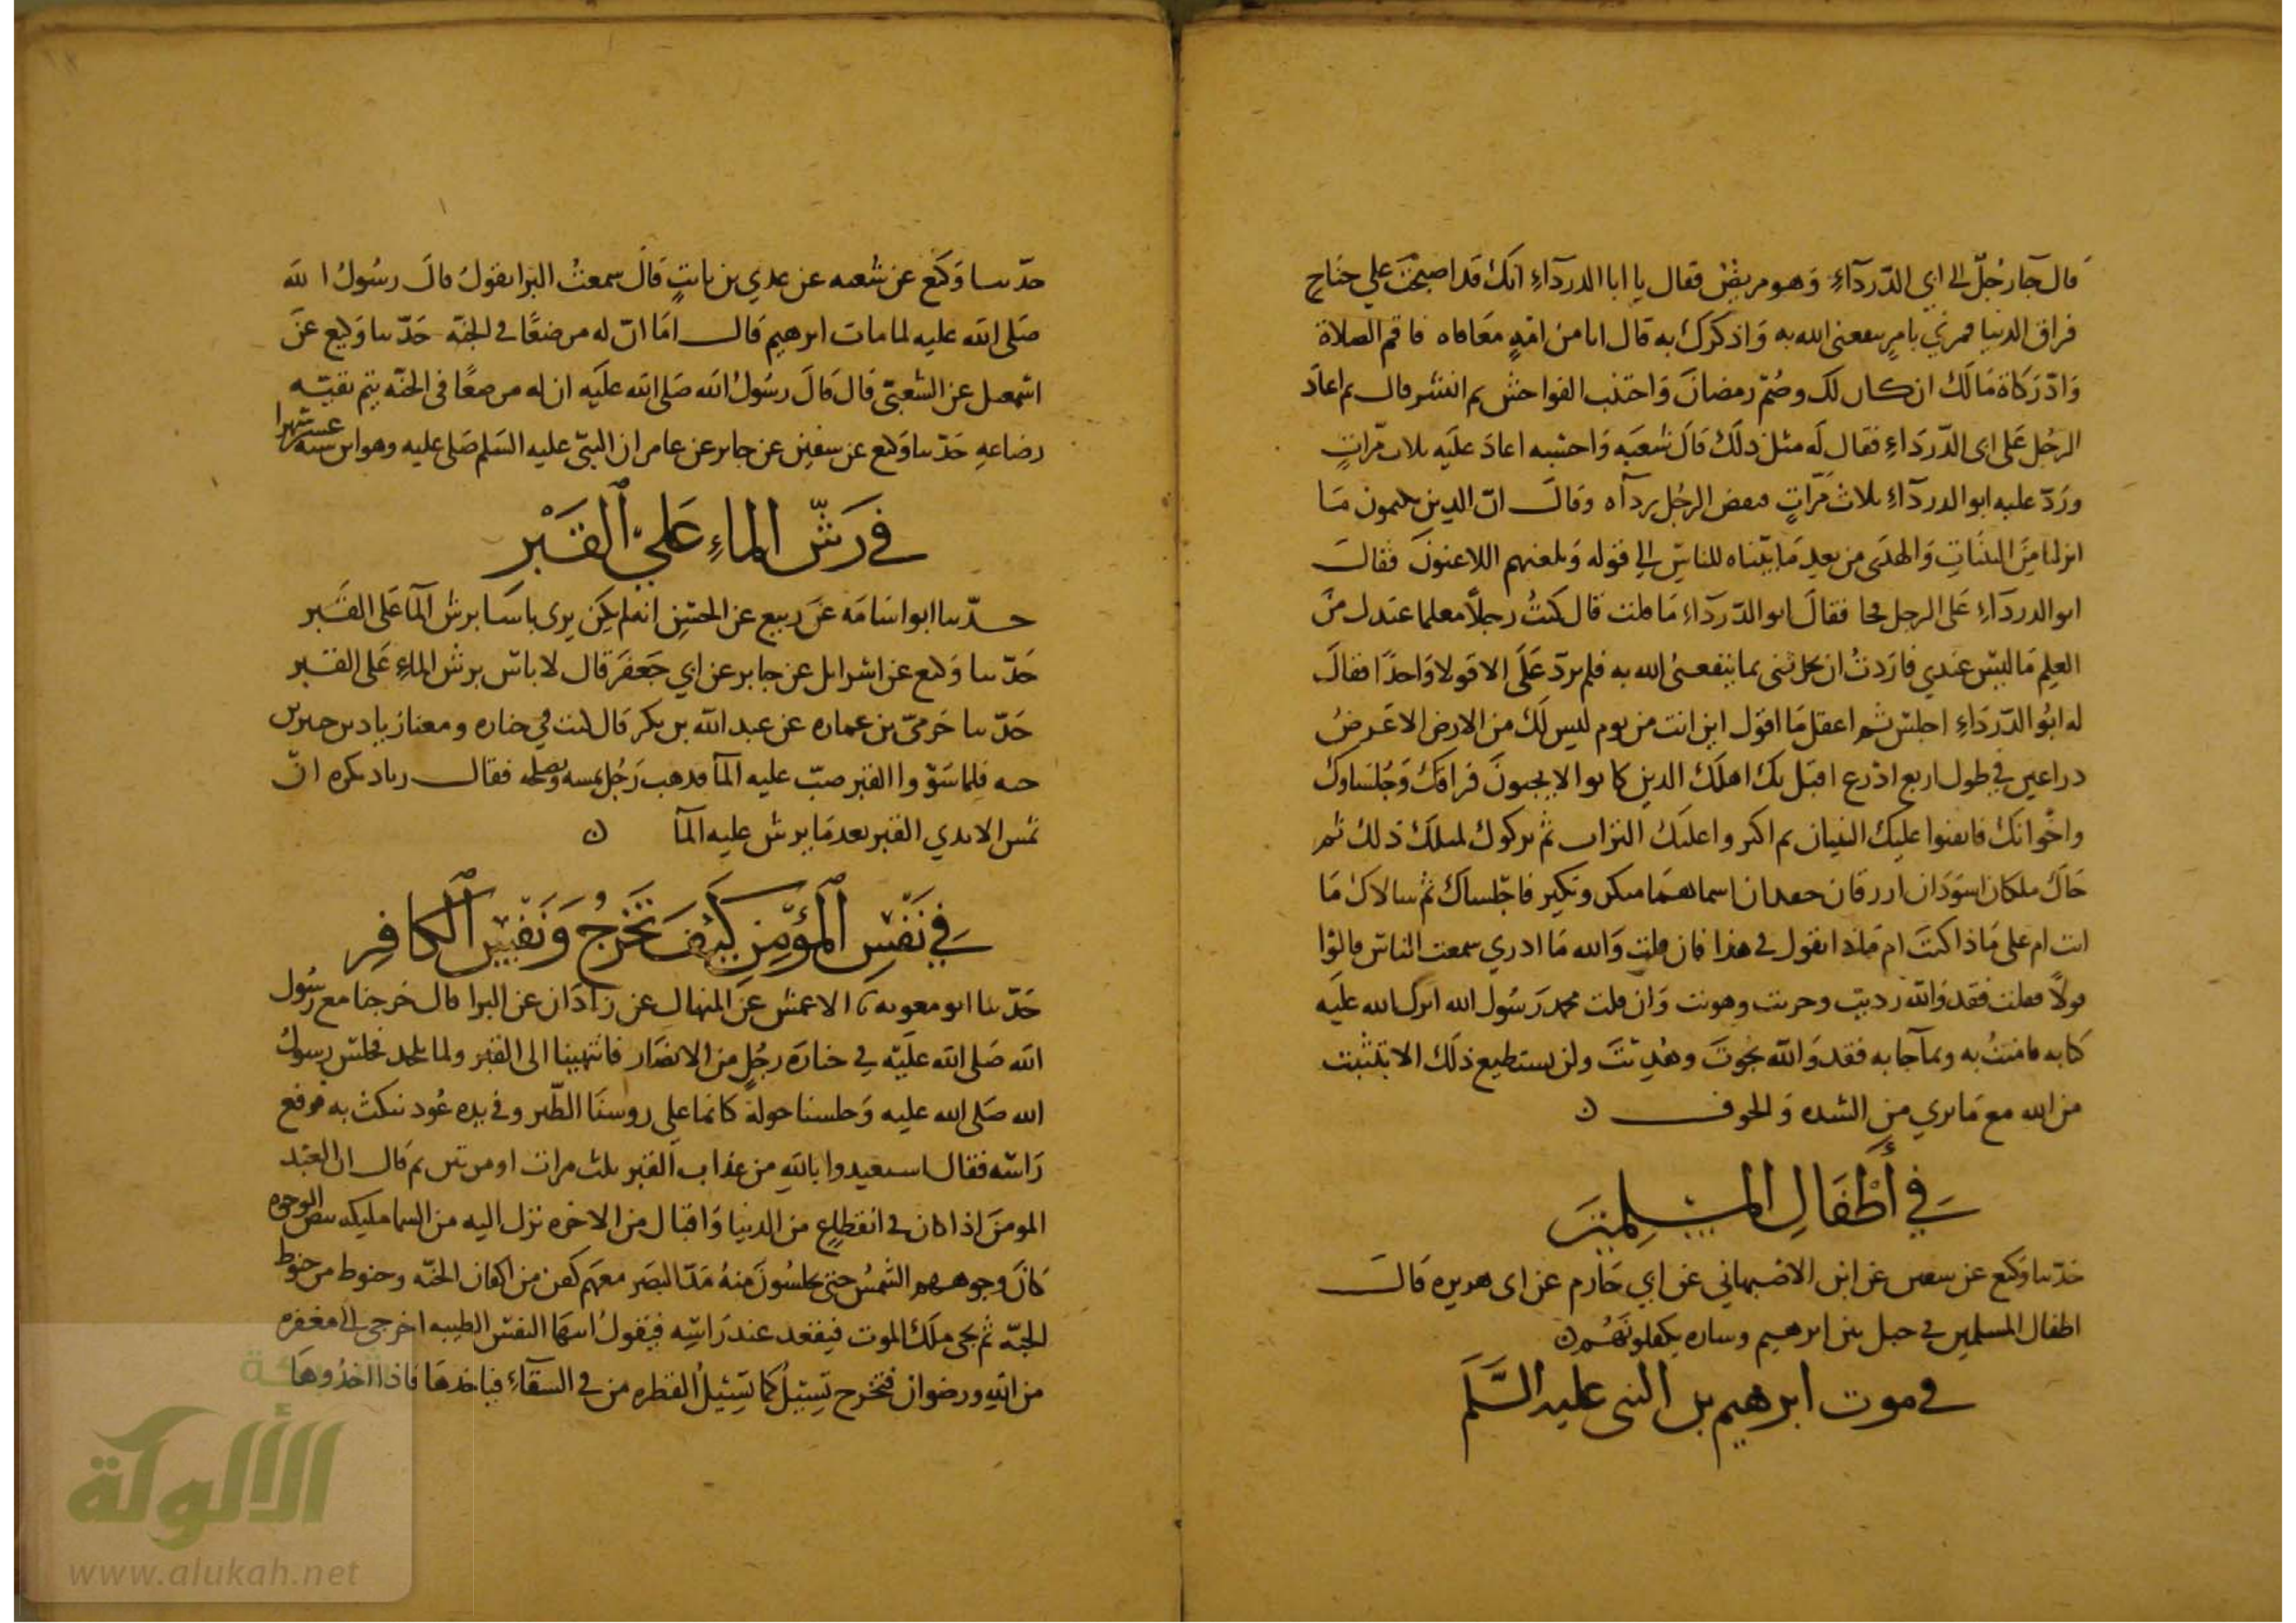 قال جا رجل الى ابي الدرداء وهو مريض فقال يا ابا الدرداء انك قد اصبحت علي جناح
فراق الدنيا فمرني بامر ينفعني الله به واذكرك به قال انك من امة معافاه فاقم الصلاة
واد زكاة مالك ان كان لك وصم رمضان واجتنب الفواحش ثم ابشر قال ثم اعاد
الرجل على ابي الدرداء فقال له مثل ذلك قال شعبه واحسبه اعاد عليه ثلاث مرات
ورد عليه ابو الدرداء ثلاث مرات فنفض الرجل رداه وقال ان الذين يكتمون ما
انزلنا من البينات والهدى من بعد ما بيناه للناس الي قوله ويلعنهم اللاعنون فقال
ابو الدرداء على الرجل فجا فقال ابو الدرداء ما قلت قال كنت رجلا معلما عندك من
العلم ما ليس عندي فاردت ان تحدثني بما ينفعني الله به فلم ترد علي الا قولا واحدا فقال
له ابو الدرداء اجلس ثم اعقل ما اقول اين انت من يوم ليس لك من الارض الا عرض
ذراعين في طول اربع اذرع اقبل بك اهلك الذين كانوا لا يحبون فراقك وجلساوك
واخوانك فاتقنوا عليك البنيان ثم اكثروا عليك التراب ثم تركوك لمتلك ذلك ثم
جاك ملكان اسودان ازرقان جعدان اسماهما منكر ونكير فاجلساك ثم سالاك ما
انت ام على ماذا كنت ام ماذا تقول في هذا فان قلت والله ما ادري سمعت الناس قالوا
قولا فقلت فقد والله رديت وخزيت وهويت وان قلت محمد رسول الله انزل الله عليه
كتابه فامنت به وبما جا به فقد والله نجوت وهديت ولن تستطيع ذلك الا بتثبيت
من الله مع ما ترى من الشده والخوف ن
في أطفال المسلمين
حدثنا وكيع عن سفين عن ابن الاصبهاني عن ابي حازم عن ابي هريره قال
اطفال المسلمين في جبل بين ابرهيم وساره يكفلونهم ن
في موت ابرهيم بن النبي عليه السلم
حدثنا وكيع عن شعبه عن عدي بن ثابت قال سمعت البرا يقول قال رسول الله
صلى الله عليه لما مات ابرهيم قال اما ان له مرضعا في الجنة حدثنا وكيع عن
اسمعيل عن الشعبي قال قال رسول الله صلى الله عليه ان له مرضعا في الجنة يتم بقية
رضاعه حدثنا وكيع عن سفين عن جابر عن عامر ان النبي عليه السلم صلى عليه وهو ابن ستة عشر شهرا
في رش الماء علي القبر
حدثنا ابو اسامه عن ربيع عن الحسن انه لم يكن يرى باسا برش الما على القبر
حدثنا وكيع عن اسرائل عن جابر عن ابي جعفر قال لا باس برش الماء على القبر
حدثنا حرمي بن عماره عن عبد الله بن بكر قال كنت في جنازه ومعنا زياد بن جبير بن
حيه فلما سووا القبر صب عليه الما فذهب رجل يمسه ويصلحه فقال زياد يكره ان
تمس الايدي القبر بعد ما يرش عليه الما ن
في نفس المؤمن كيف تخرج ونفس الكافر
حدثنا ابو معويه نا الاعمش عن المنهال عن زاذان عن البرا قال خرجنا مع رسول
الله صلى الله عليه في جنازة رجل من الانصار فانتهينا الى القبر ولما يلحد فجلس رسول
الله صلى الله عليه وجلسنا حوله كانما على روسنا الطير وفي يده عود ينكث به فرفع
راسه فقال استعيدوا بالله من عذاب القبر ثلث مرات او مرتين ثم قال ان العبد
المومن اذا كان في انقطاع من الدنيا واقبال من الاخره نزل اليه من السما مليكه بيض الوجوه
كان وجوههم الشمس حتى يجلسون منه مد البصر معهم كفن من اكفان الجنه وحنوط من حنوط
الجنه ثم يجي ملك الموت فيقعد عند راسه فيقول ايتها النفس الطيبه اخرجي الى مغفره
من الله ورضوان فتخرج تسيل كما تسيل القطره من في السقاء فياخذها فاذا اخذوها
شبكة
الألوكة
www.alukah.net